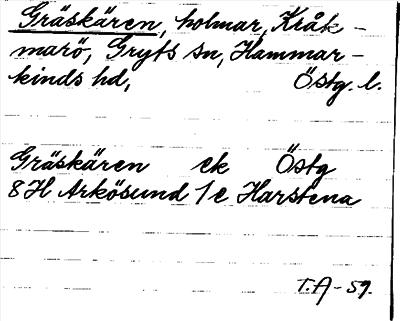 Gräskären, holmar, Kråk-
marö, Gryts sn, Hammar-
kinds hd, Östg. l.
Gräskären ek Östg
8H Arkösund 1 e Harstena
T.A-59.